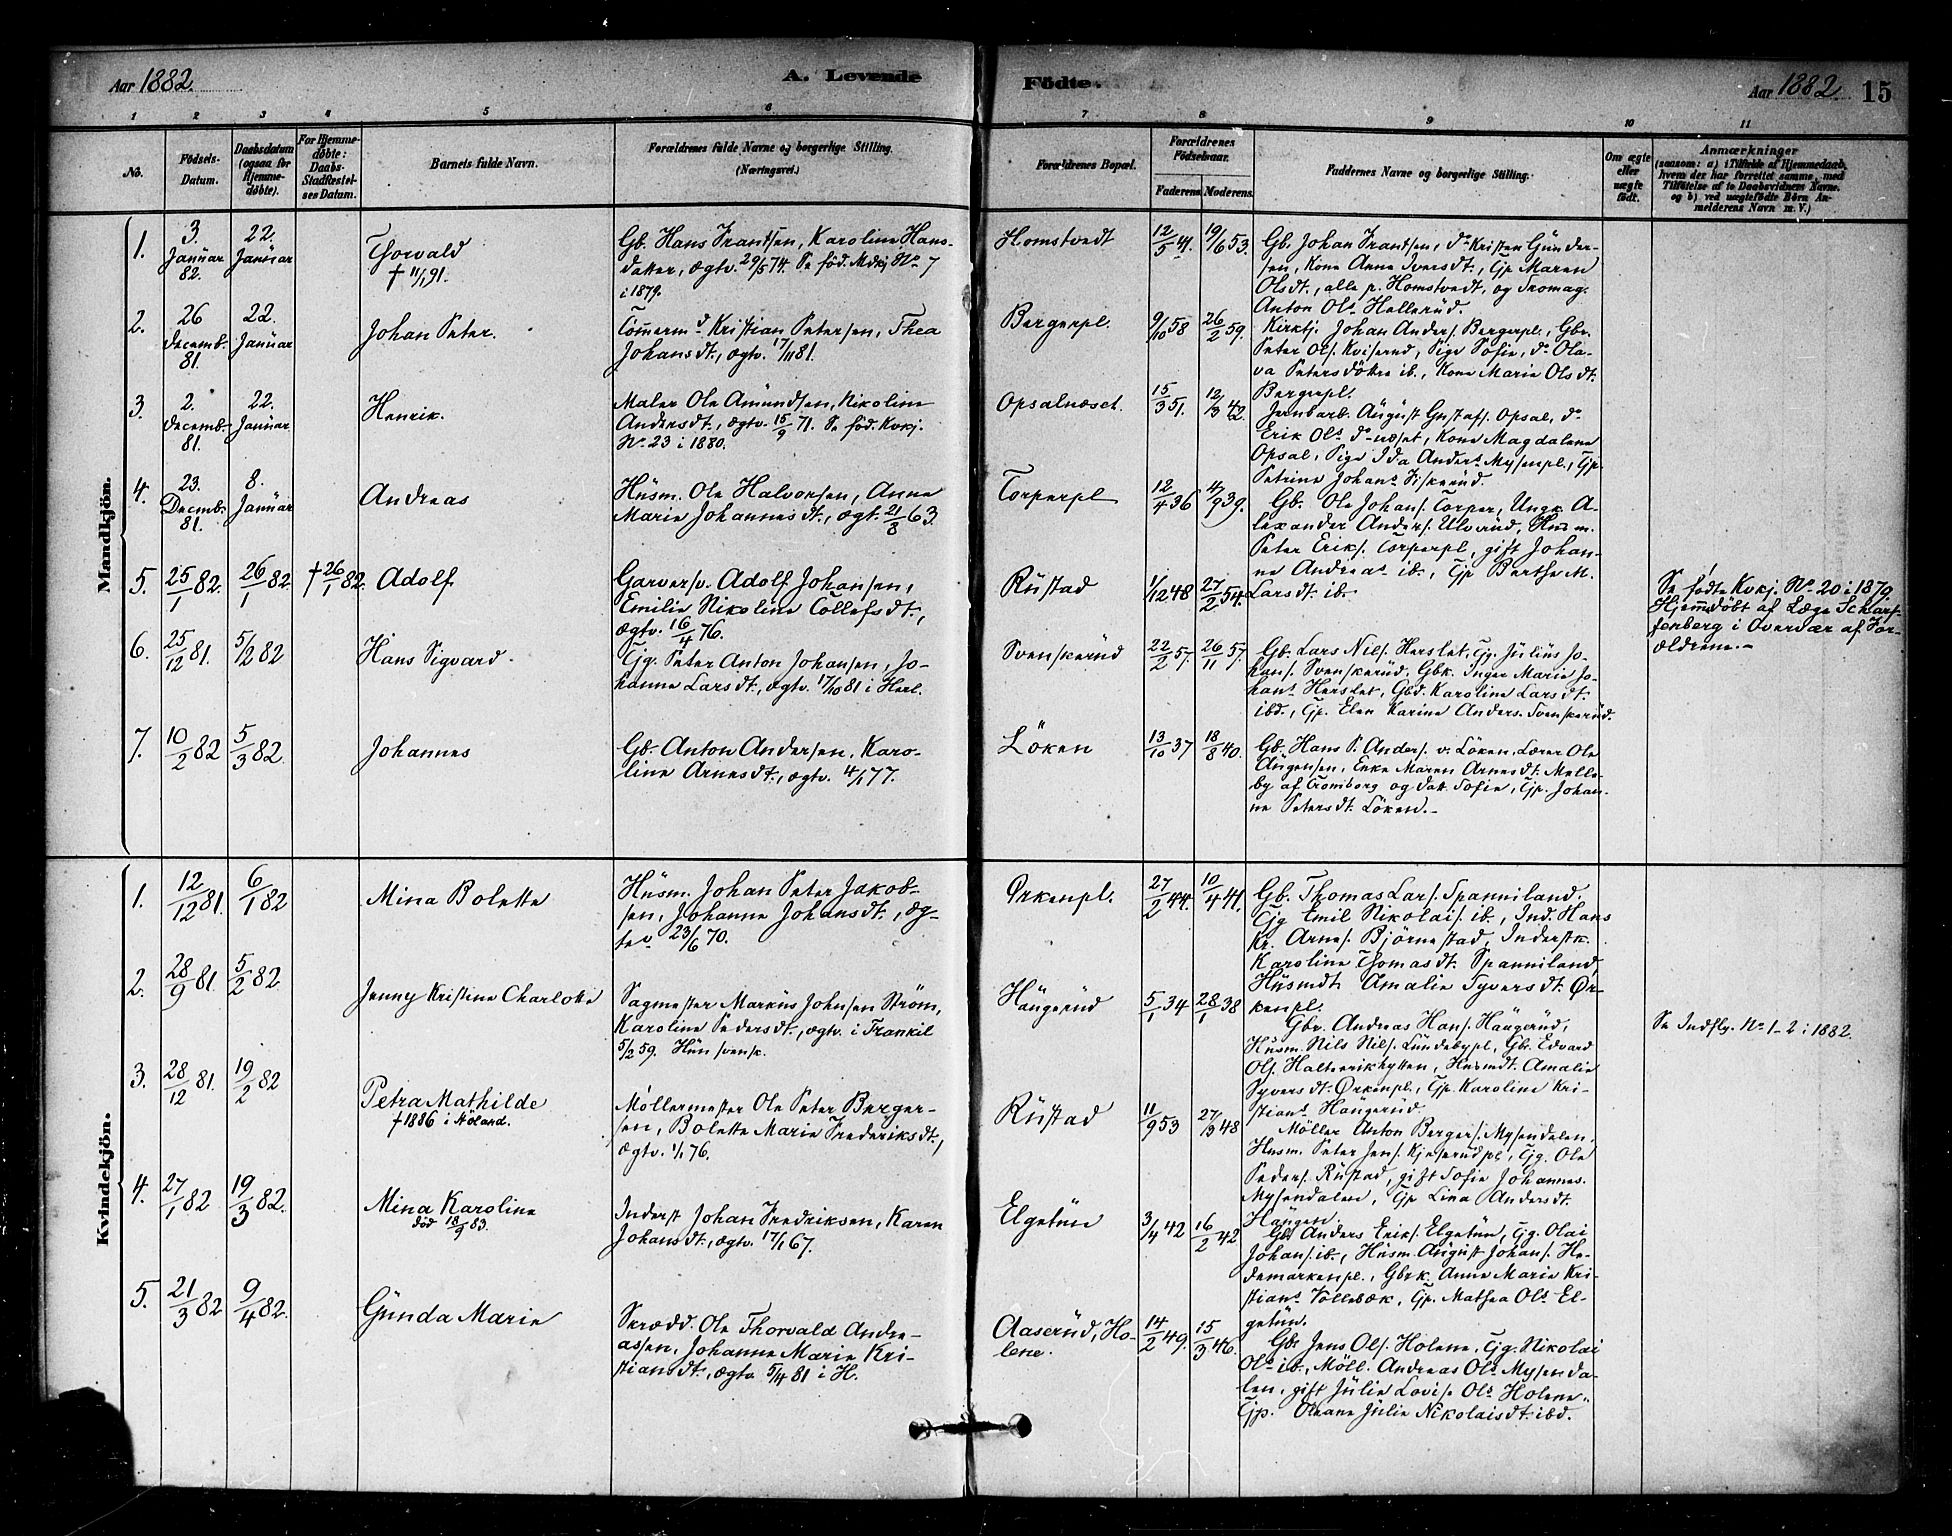 Aar 1882.
A. Levende
Födte.
Aar 1882.
15
1 2 3 4 5 6 7 8 9 10 11
No.
Födsels-Datum.
Daabsdatum (ogsaa for Hjemme-döbte).
For Hjemme-döbte: Daabs-Stadfæstel-ses Datum.
Barnets fulde Navn.
Forældrenes fulde Navne og borgerlige Stilling.
(Næringsvei.)
Forældrenes Bopæl.
Forældrenes Födselsaar.
Faderens. Moderens.
Faddernes Navne og borgerlige Stilling.
Om ægte eller uægte födt.
Anmærkninger
(saasom: a) i Tilfælde af Hjemmedaab,
hvem der har forrettet samme, med
Tilföielse af to Daabsvidners Navne.
og b) ved uægtefödte Börn An-
melderens Navn m. V.)
Mandkjön.
1.
3. Januar 82.
22. Januar
Thorvald
† 11/1 91.
Gb. Hans Frantsen, Karoline Hans-
datter, ægtv. 29/5 74. Se föd. Mdkj No 7
i 1879.
Homstvedt
12/5 41.
19/6 53.
Gb. Johan Frantsen, do Kristen Günder-
sen, Kone Anne Iversdt., Gp Maren
Olsdt., alle p. Homstvedt, og Skomag.
Anton Ols Hellerüd.
2.
26 Decemb. 81.
22. Januar
Johan Peter.
Tömmerm d Kristian Petersen, Thea
Johansdt., ægtv. 17/11 81.
Bergerpl.
9/10 58
26/2 59.
Kirktj. Johan Anders. Bergerpl., Gbr.
Peter Ols. Kviserud, Pige Sofie, do Ola-
va Petersdöttre ib., Kone Marie Olsdt.
Bergerpl.
3.
2. Decemb. 81.
22. Januar
Henrik.
Maler Ole Amundsen, Nikoline
Andersdt., ægtv. 15/9 71. Se föd. Kvkj.
No 23 i 1880.
Opsalnæset.
15/3 51.
12/3 42.
Jernbarb. August Gustafs. Opsal, do
Erik Ols do-næset, Kone Magdalene
Opsal, Pige Ida Anders Mysenpl., Gp.
Petrine Johans Fiskerüd.
4.
23. Decmb. 81.
8. Januar
Andreas
Hüsm. Ole Halvorsen, Anne
Marie Johannesdt., ægt. 21/3 63.
Torperpl
12/4 36
4/9 39.
Gb. Ole Johans. Torper, Ungk. A-
lexander Anders. Ulverud, Husm.
Peter Eriks. Torperpl, gift Johan-
ne Andreas ib., Gp Berthe M.
Larsdt. ib.
5.
25/1 82.
26/1 82.
† 26/1 82.
Adolf
Garversv. Adolf Johansen,
Emilie Nikoline Tollefsdt.,
ægtv. 16/4 76.
Rüstad
1/12 48
27/2 54.
Se födte Kvkj. No 20 i 1879.
Hjemmedöbt af Læge Scharf-
fenberg i Overvær af For-
ældrene.-
6.
25/12 81.
5/2 82
Hans Sigvard.
Gg. Peter Anton Johansen, Jo-
hanne Larsdt., ægtv. 17/10 81 i Herl.
Svenskerüd
22/2 57.
26/11 57.
Gb. Lars Nils. Herslet, Gg. Jülius Jo-
hans. Svenskerüd, Gbk. Inger Marie Jo-
hans Herslet, Gbd. Karoline Larsdt.
ibd., Gp. Elen Karine Anders. Svenskerüd.
7.
10/2 82
5/3 82.
Johannes
Gb. Anton Andersen, Karo-
line Arnesdt., ægtv. 4/1 77.
Löken
13/10 37
18/8 40.
Gb. Hans P. Anders. v. Löken, Lærer Ole
Augensen, Enke Maren Arnesdt. Melle-
by af Tromborg og datt. Sofie, Gp. Johan-
ne Petersdt. Löken.-
Kvindekjön.
1.
12/12 81.
6/1 82
Mina Bolette
Hüsm. Johan Peter Jakob-
sen, Johanne Johansdt., æg-
tev 23/6 70.
Ørkenpl.
27/2 44.
10/4 41.
Gb. Thomas Lars. Spanniland,
Gg Emil Nikolais. ib., Ind. Hans
Kr. Arnes. Björnestad, Inderstk.
Karoline Thomasdt. Spanniland,
Hüsmdt. Amalie Syversdt. Ør-
kenpl.
2.
28/9 81.
5/2 82.
Jenny Kristine Charlotte
Sagmester Markus Johnsen Ström,
Karoline Pedersdt., ægtv. i Frankil
5/2 59. Hün svensk.
Haugerüd
5/1 34
28/1 38
Gbr. Andreas Hans. Haugerüd,
Husm. Nils Nils. Lundebypl, Gbr. Edvard
Ols. Halterrikhytten, Husmdt. Amalie
Syversdt. Ørkenpl., Gp. Karoline Kri-
stians Haugerüd
Se Indfly. No 1-2 i 1882.
3.
28/12 81.
19/2 82
Petra Mathilde
† 1886 i Höland.
Möllermester Ole Peter Berger-
sen, Bolette Marie Frederiksdt.,
ægtv. 1/1 76.
Rüstad
11/9 53
27/3 48
Möller Anton Bergers. Mysendalen,
Husm. Peter Jens. Kjeserüdpl, Gg. Ole
Peders. Rüstad, gift Sofie Johannes.
Mysendalen, Gp Lina Andersdt.
Haugen.
4.
27/1 82
19/3 82.
Mina Karoline
död 18/9 83.
Inderst Johan Fredriksen, Karen
Johansdt., ægtv. 17/1 67.
Elgetün
3/4 42
16/2 42
Gb Anders Eriks. Elgetün, Gg. Olai
Johans. ib., Hüsm. August Johans. He-
demarkenpl., Gbrk. Anne Marie Kri-
stians Vollebæk, Gp. Mathea Ols El-
getün.
5.
21/3 82
9/4 82.
Günda Marie
Skrædd. Ole Thorvald Andre-
assen, Johanne Marie Kri-
stiansdt., ægtv. 5/4 81 i H.
Aaserüd, Ho-
lene.
14/2 49.
15/3 46.
Gbr Jens Ols. Holene, Gg. Nikolai
Ols ib., Möll. Andreas Ols Mysenda-
len, gift Jülie Lovise Ols Holene,
Gp. Oleane Jülie Nikolaisdt. ibd.